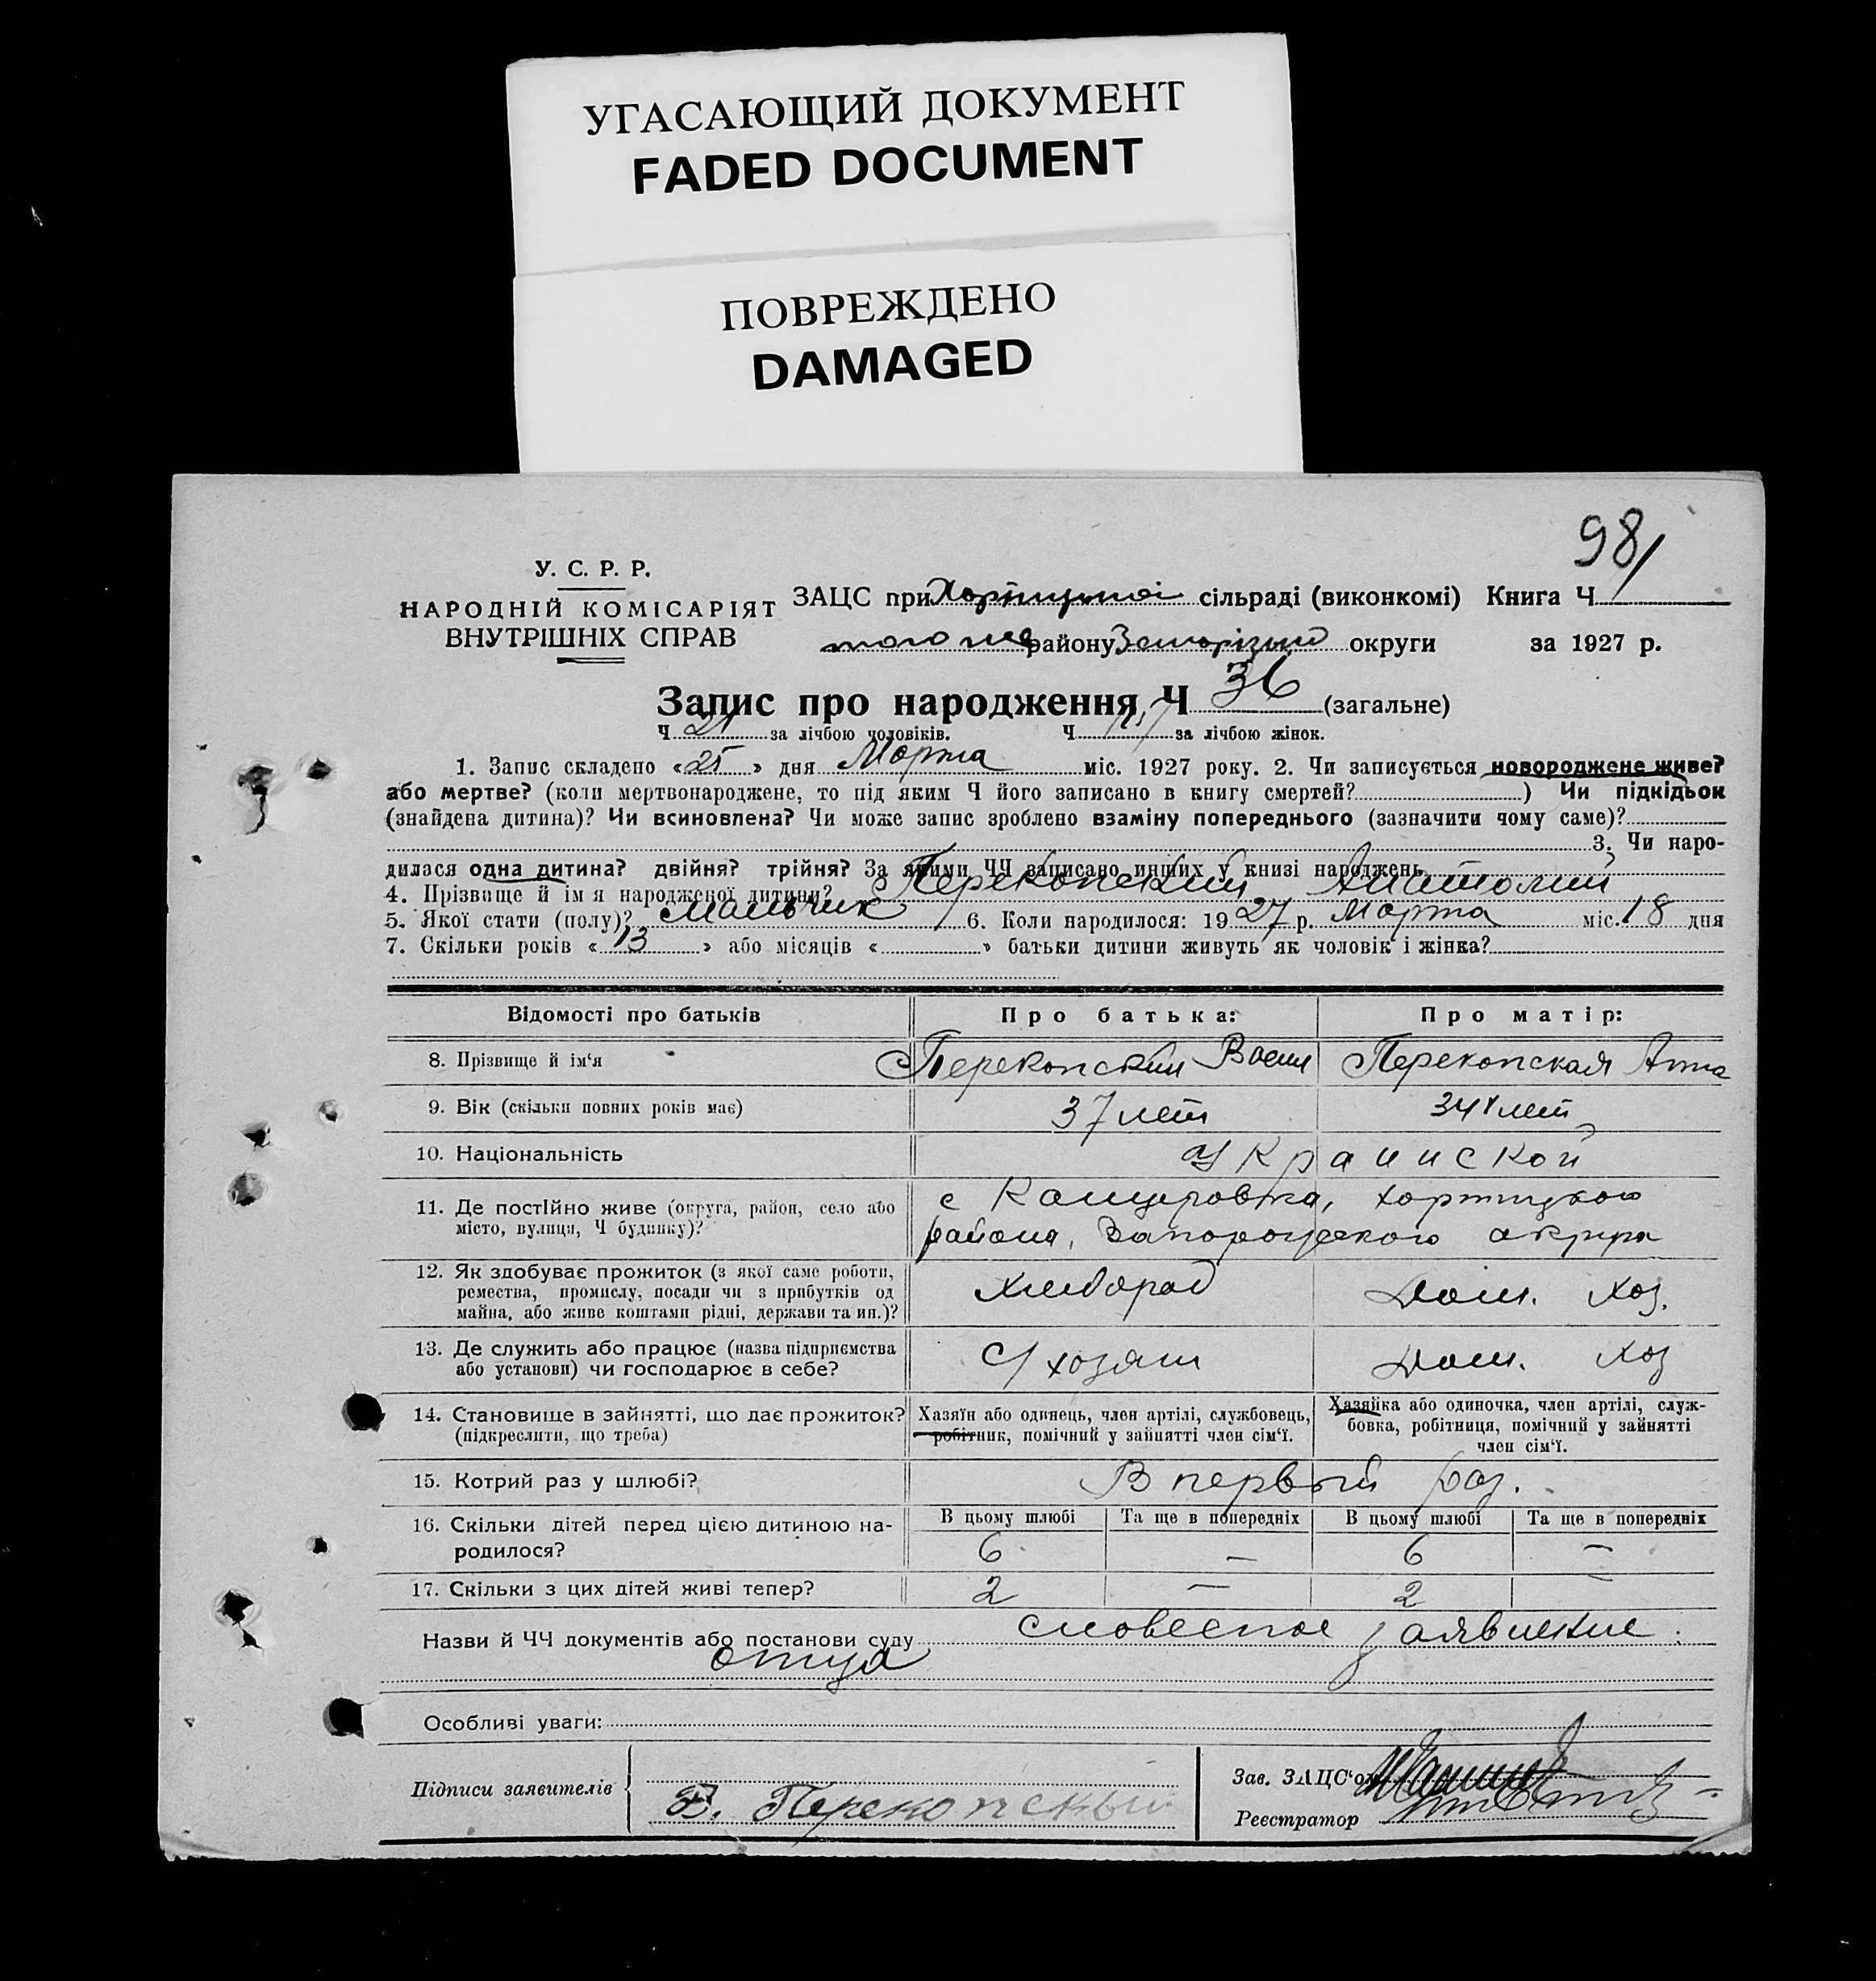 УГАСАЮЩИЙ ДОКУМЕНТ
FADED DOCUMENT
ПОВРЕЖДЕНО
DAMAGED
98
У. С. Р. Р.
НАРОДНІЙ КОМІСАРІЯТ
ВНУТРІШНІХ СПРАВ
ЗАЦС при Хортицькой сільраді (виконкомі) Книга Ч 1
того же району Запорізькой округи за 1927 р.
Запис про народження Ч 36 (загальне)
Ч 21 за лічбою чоловіків. Ч за лічбою жінок.
1. Запис складено «25» дня Марта міс. 1927 року. 2. Чи записується новороджене живе?
або мертве? (коли мертвонароджене, то під яким Ч його записано в книгу смертей? ) Чи підкідьок
(знайдена дитина)? Чи всиновлена? Чи може запис зроблено взаміну попереднього (зазначити чому саме)?
3. Чи наро-
дилася одна дитина? двійня? трійня? За якими ЧЧ записано инших у книзі народжень
4. Прізвище й ім я народженої дитини? Перекопский Анатолий
5. Якої стати (полу)? мальчик 6. Коли народилося: 1927 р. Марта міс. 18 дня
7. Скільки років «13» або місяців « » батьки дитини живуть як чоловік і жінка?
Відомості про батьків Про батька: Про матір:
8. Прізвище й ім‘я Перекопский Васил Перекопская Анна
9. Вік (скільки повних років має) 37 лет 34 лет
10. Національність украинской
11. Де постійно живе (округа, район, село або с Канцеровка, Хортицкого
місто, вулиця, Ч будинку)? района, Запорожского округа
12. Як здобуває прожиток (з якої саме роботи, Хлебороб Дом. хоз.
ремества, промислу, посади чи з прибутків од
майна, або живе коштами рідні, держави та ин.)?
13. Де служить або працює (назва підприємства С/хозяин Дом. хоз
або установи) чи господарює в себе?
14. Становище в зайнятті, що дає прожиток? Хазяїн або одинець, член артілі, службовець, Хазяйка або одиночка, член артілі, служ-
(підкреслити, що треба) робітник, помічний у зайнятті член сім‘ї. бовка, робітниця, помічний у зайнятті
член сім‘ї.
15. Котрий раз у шлюбі? В первый раз.
16. Скільки дітей перед цією дитиною на- В цьому шлюбі Та ще в попередніх В цьому шлюбі Та ще в попередніх
родилося? 6 — 6 —
17. Скільки з цих дітей живі тепер? 2 — 2 —
Назви й ЧЧ документів або постанови суду словесное заявление
отца
Особливі уваги:
Підписи заявителів В. Перекопский
Зав. ЗАЦС‘ом
Реєстратор